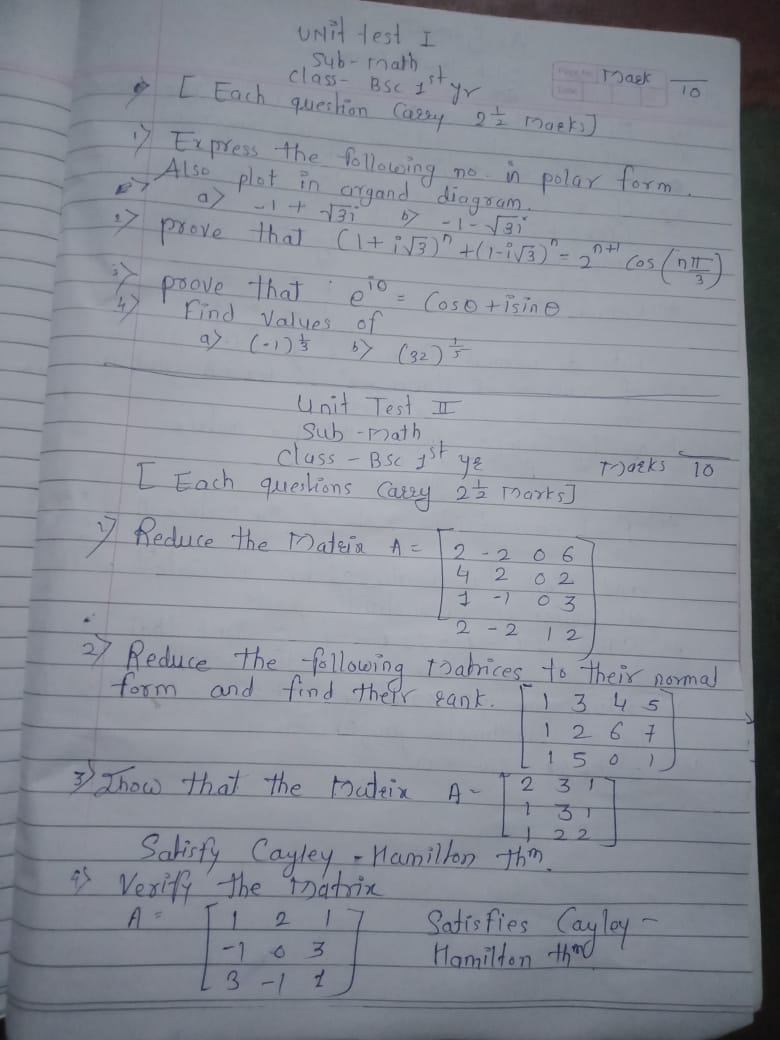 UNit test I
Sub- math
class- BSC 1st yr
Mask /10
[ Each question Carry 2 1/2 Marks]
1) Express the following no. in polar form.
Also plot in argand diagram.
a) -1 + √3i b) -1-√3i
2) prove that (1+i√3)^n + (1-i√3)^n = 2^(n+1) Cos (nπ/3)
3) prove that e^iθ = Cosθ + isinθ
4) Find Values of
a) (-1)^1/3 b) (32)^1/5
Unit Test II
Sub -Math
Class - BSC 1st yr
Marks /10
[ Each questions Carry 2 1/2 Marks]
1) Reduce the Matrix A = [ 2 -2 0 6
4 2 0 2
1 -1 0 3
2 -2 1 2 ]
2) Reduce the following Matrices to their normal
form and find their rank. [ 1 3 4 5
1 2 6 7
1 5 0 1 ]
3) Show that the Matrix A- [ 2 3 1
1 3 1
1 2 2 ]
Satisfy Cayley - Hamilton thm.
4) Verify the Matrix
A = [ 1 2 1
-1 0 3
3 -1 1 ] Satisfies Cayley -
Hamilton thm